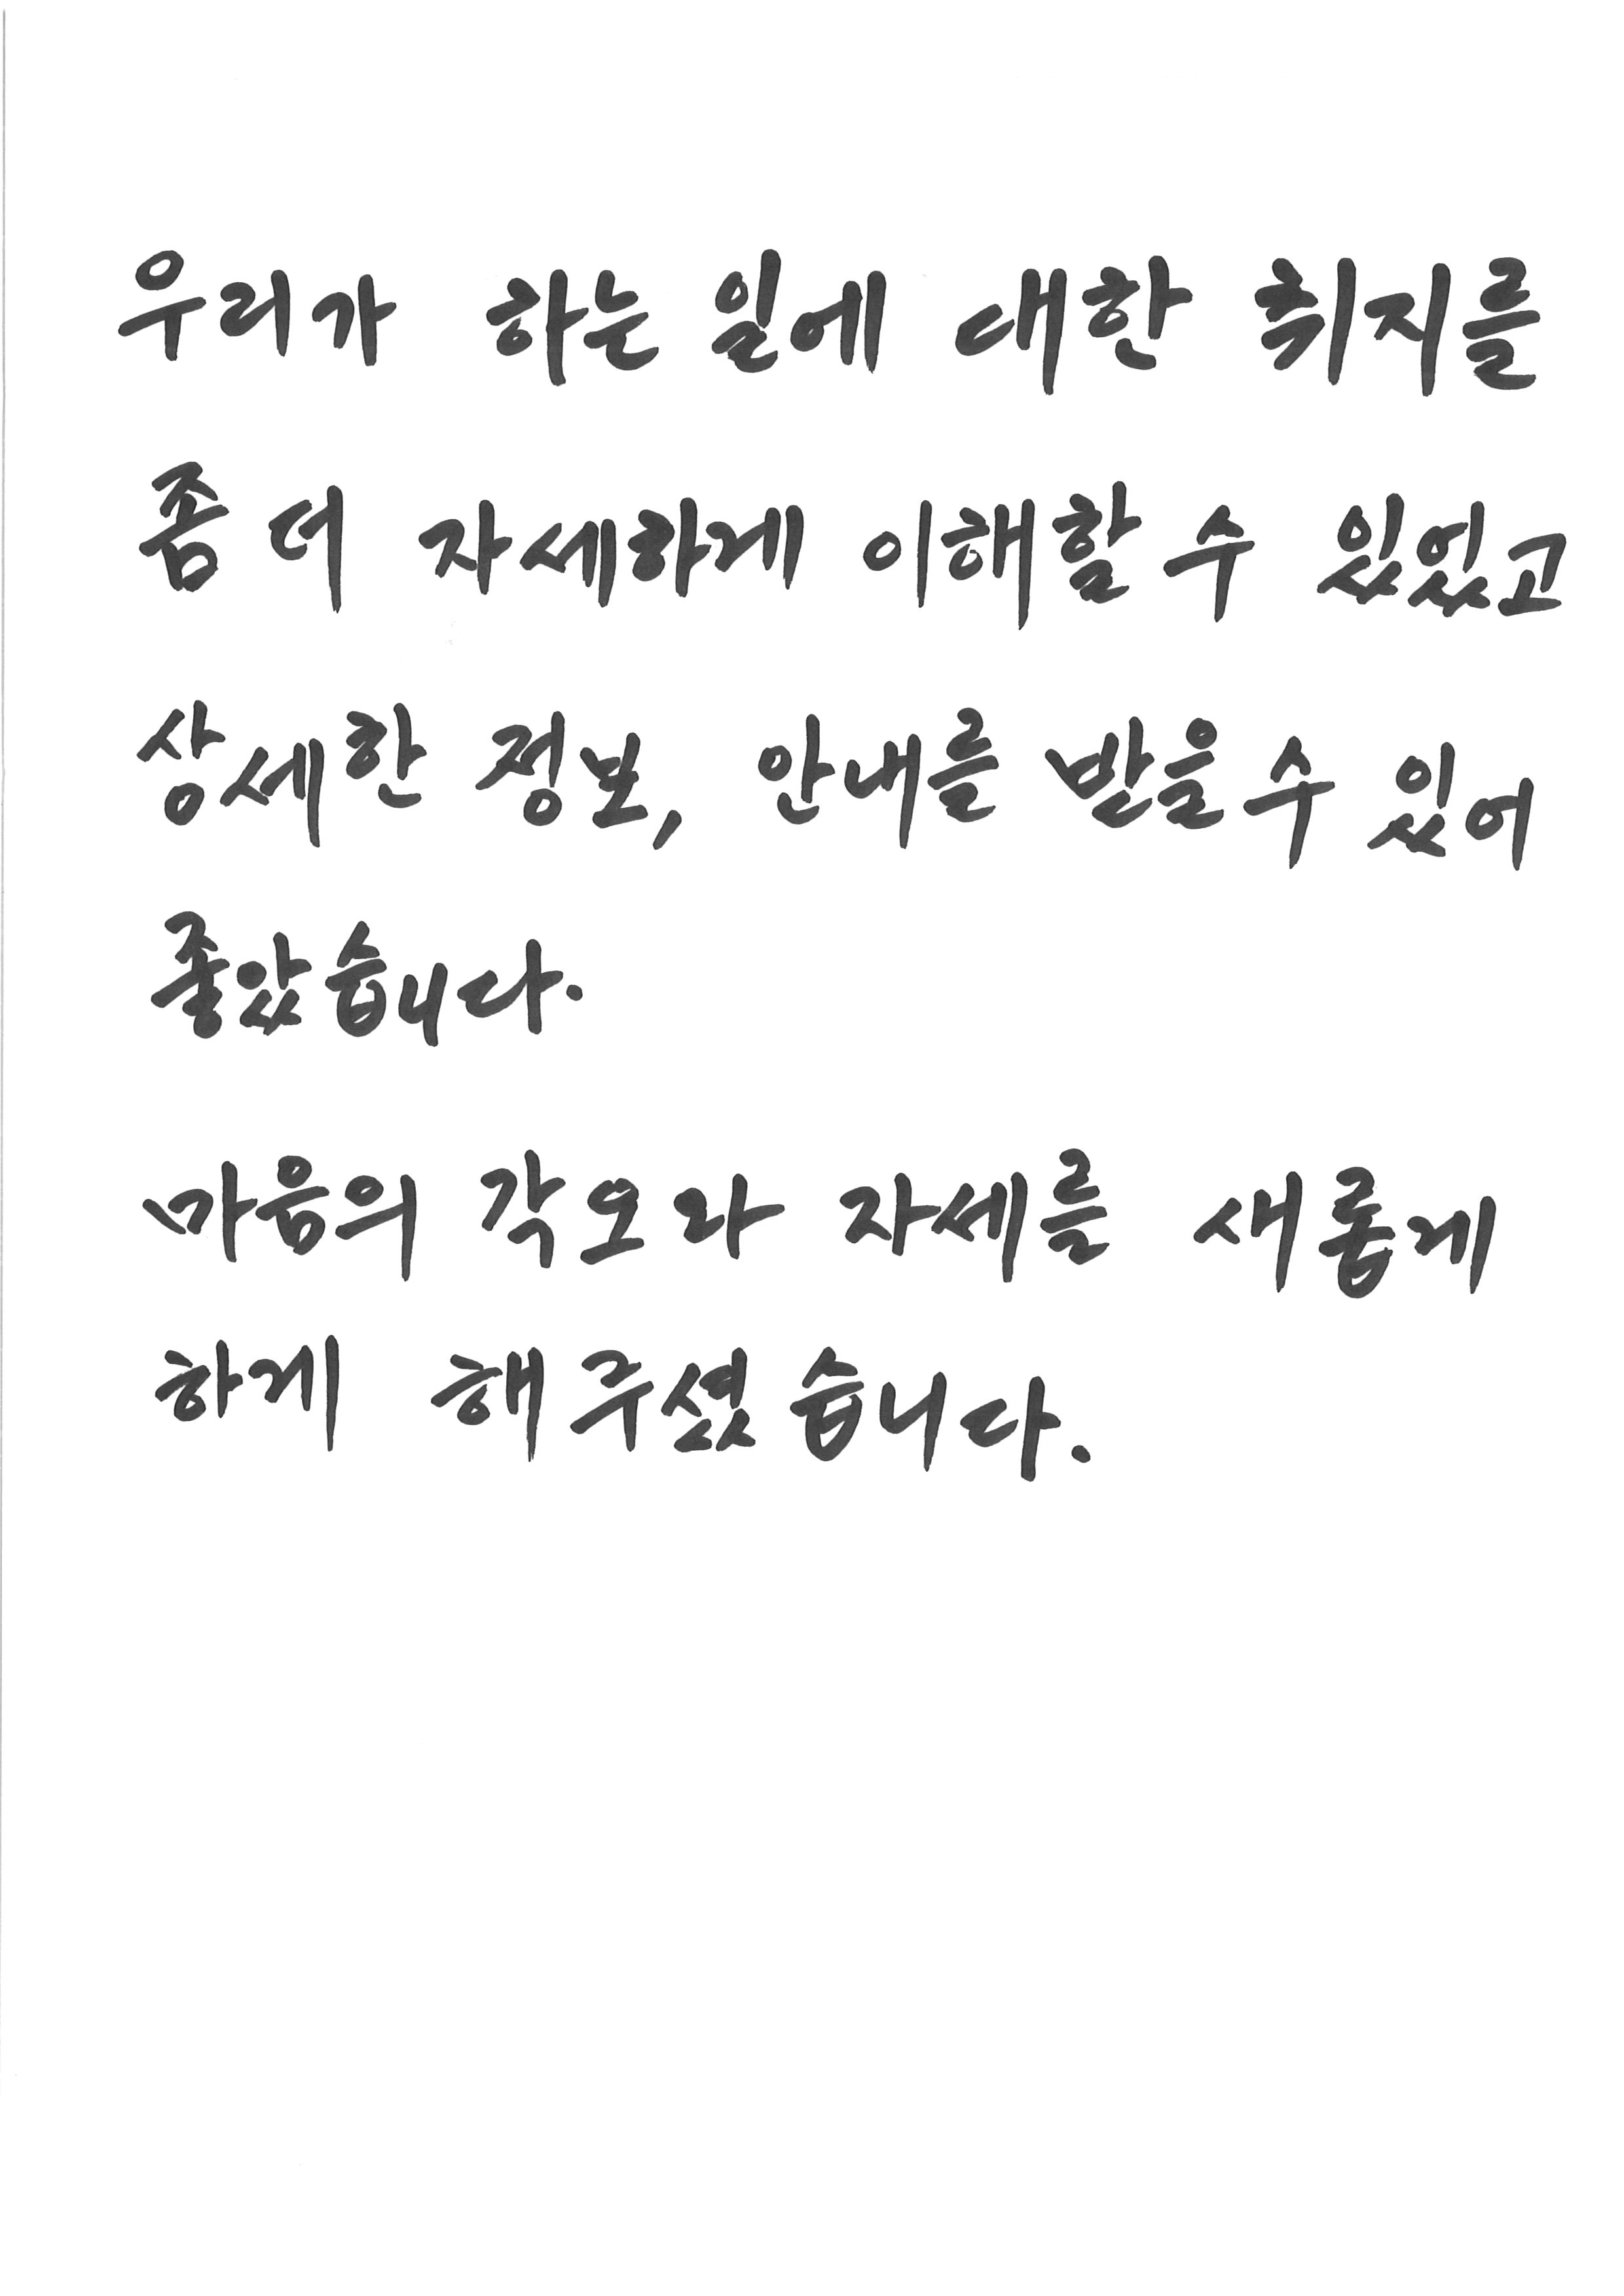 우리가 하는 일에 대한 취지를
좀 더 자세하게 이해할 수 있었고
상세한 정보, 안내를 받을 수 있어
좋았습니다.
마음의 각오와 자세를 새롭게
하게 해주셨습니다.